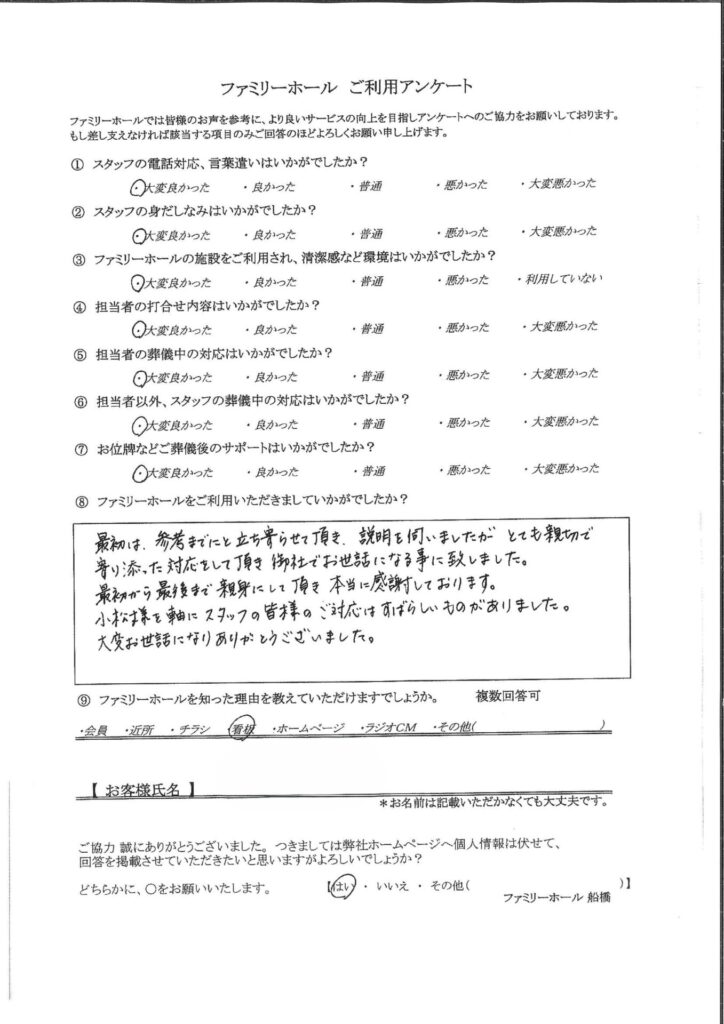 ファミリーホール ご利用アンケート
ファミリーホールでは皆様のお声を参考に、より良いサービスの向上を目指しアンケートへのご協力をお願いしております。
もし差し支えなければ該当する項目のみご回答のほどよろしくお願い申し上げます。
① スタッフの電話対応、言葉遣いはいかがでしたか？
・大変良かった ・良かった ・普通 ・悪かった ・大変悪かった
② スタッフの身だしなみはいかがでしたか？
・大変良かった ・良かった ・普通 ・悪かった ・大変悪かった
③ ファミリーホールの施設をご利用され、清潔感など環境はいかがでしたか？
・大変良かった ・良かった ・普通 ・悪かった ・利用していない
④ 担当者の打合せ内容はいかがでしたか？
・大変良かった ・良かった ・普通 ・悪かった ・大変悪かった
⑤ 担当者の葬儀中の対応はいかがでしたか？
・大変良かった ・良かった ・普通 ・悪かった ・大変悪かった
⑥ 担当者以外、スタッフの葬儀中の対応はいかがでしたか？
・大変良かった ・良かった ・普通 ・悪かった ・大変悪かった
⑦ お位牌などご葬儀後のサポートはいかがでしたか？
・大変良かった ・良かった ・普通 ・悪かった ・大変悪かった
⑧ ファミリーホールをご利用いただきましていかがでしたか？
最初は、参考までにと立ち寄らせて頂き、説明を伺いましたが とても親切で
寄り添った対応をして頂き 御社でお世話になる事に致しました。
最初から最後まで親身にして頂き 本当に感謝しております。
小松様を軸にスタッフの皆様のご対応はすばらしいものがありました。
大変お世話になりありがとうございました。
⑨ ファミリーホールを知った理由を教えていただけますでしょうか。 複数回答可
・会員 ・近所 ・チラシ ・看板 ・ホームページ ・ラジオCM ・その他( )
【 お客様氏名 】
＊お名前は記載いただかなくても大丈夫です。
ご協力 誠にありがとうございました。つきましては弊社ホームページへ個人情報は伏せて、
回答を掲載させていただきたいと思いますがよろしいでしょうか？
どちらかに、〇をお願いいたします。 【はい ・ いいえ ・ その他( )】
ファミリーホール 船橋